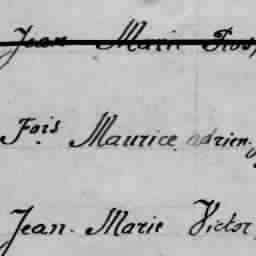 Jean Marie
Fois Maurice adrien.
Jean. Marie Victor